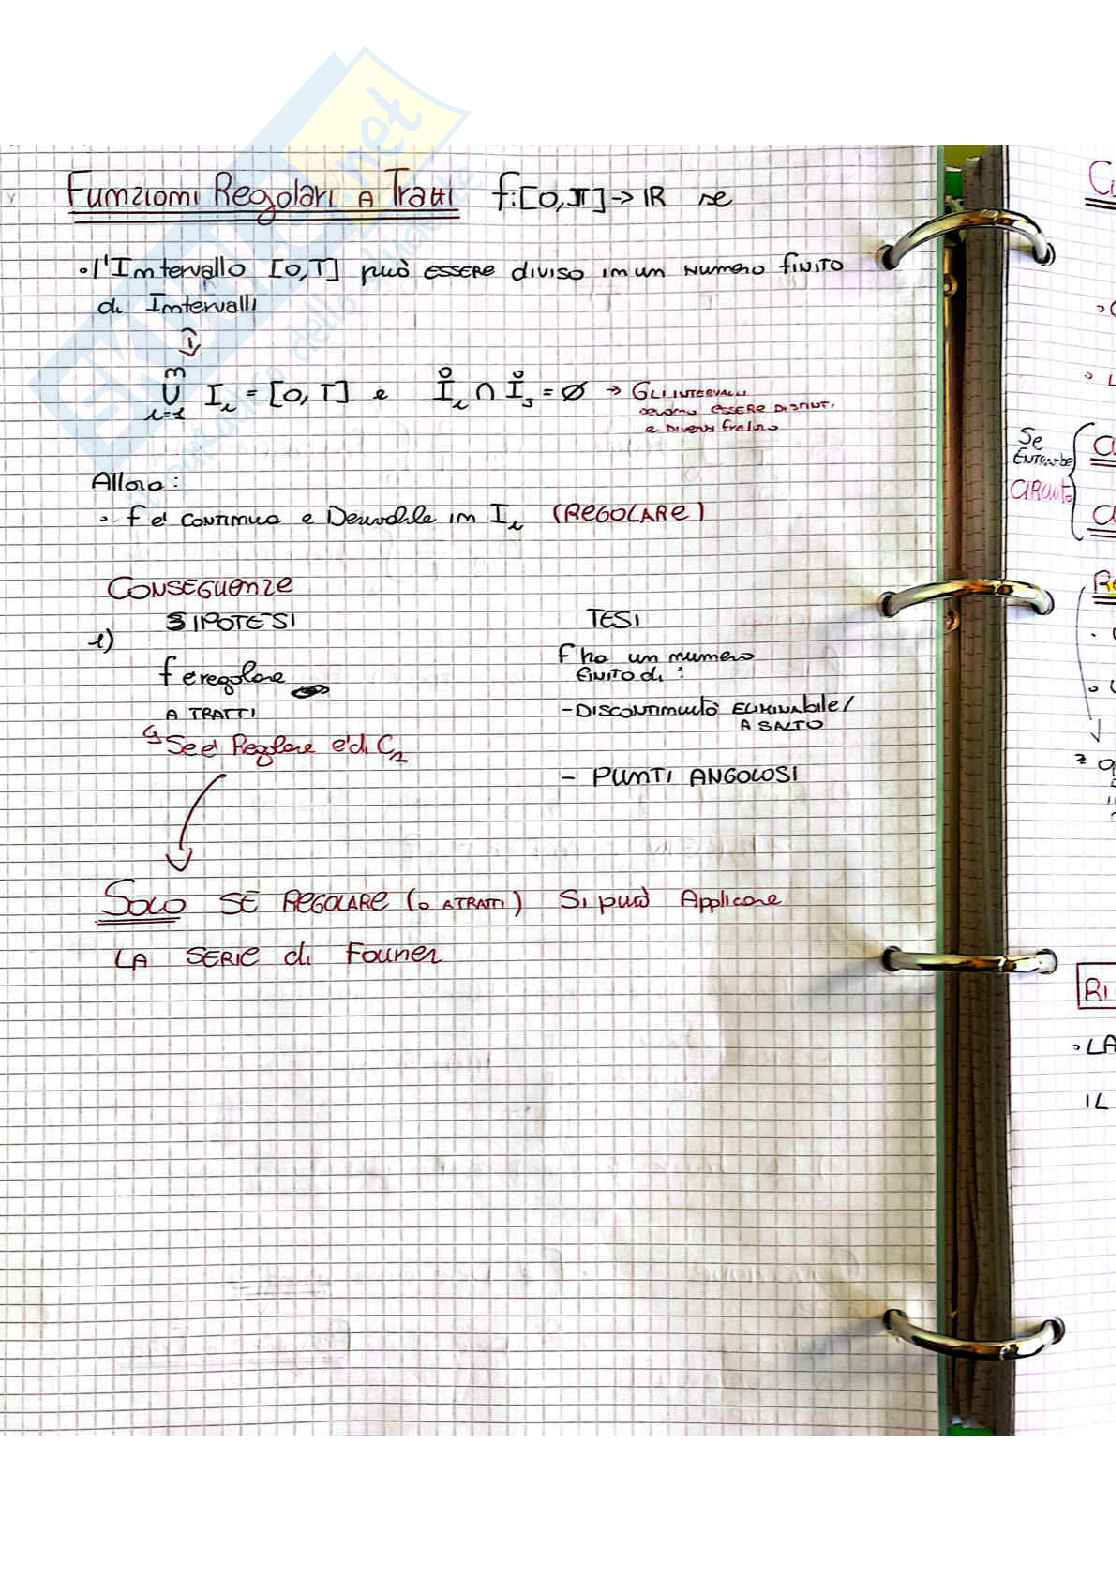 Funzioni Regolari A Tratti f:[0,T]→IR se
• l'Intervallo [0,T] può ESSERE diviso in un numero finito
di Intervalli
n
U I_i = [0,T] e I̊_i ∩ I̊_j = ∅ → GLI INTERVALLI
i=1
devono ESSERE DISTINTI
e DIVERSI fra loro
Allora:
• f è continua e Derivabile in I_i (REGOLARE)
CONSEGUENZE
IPOTESI TESI
1)
f ha un numero
FINITO di:
f è regolare
A TRATTI
- DISCONTINUITà ELIMINAbile/
A SALTO
↳ Se è Regolare è di C_1
- PUNTI ANGOLOSI
SOLO SE REGOLARE (o A TRATTI) Si può Applicare
LA SERIE di Fourier
Se
ENTRAMBE
CIRCUITO
RI
• LA
IL
net